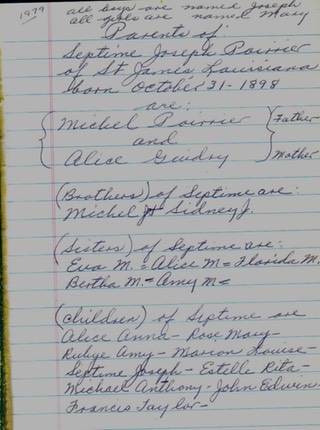 1979
all boys are named Joseph
all girls are named Mary
Parents of:
Septime Joseph Poirrier
of St James, Louisiana
born October 31-1898
are:
Michel Poirrier } Father
and
Alice Guidry } Mother
(Brothers) of Septime are:
Michel Jr Sidney J.
(Sisters) of Septime are:
Eva M. = Alice M = Florida M.
Bertha M = Amy M =
(Children) of Septime are
Alice Anna - Rose Mary -
Rubye Amy - Marion Louise -
Septime Joseph - Estelle Rita -
Michael Anthony - John Edwin -
Francis Taylor -